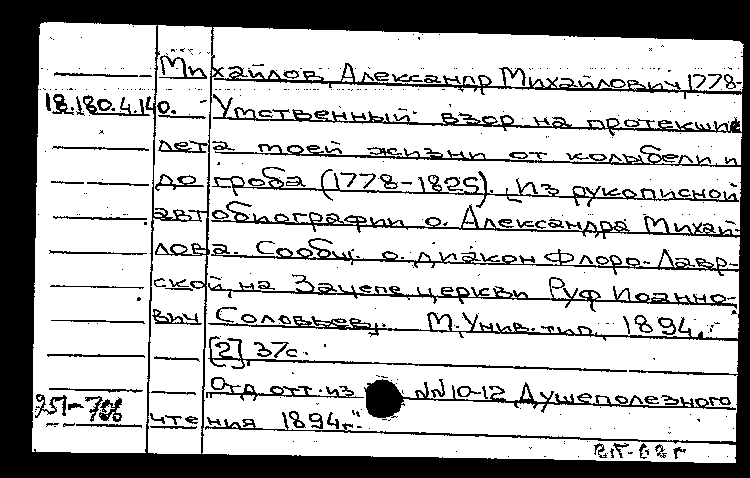 Михайлов, Александр Михайлович, 1778-
18.180.4.140. Умственный взор на протекшие
лета моей жизни от колыбели и
до гроба (1778-1825). [Из рукописной
автобиографии о. Александра Михай-
лова. Сообщ. о. диакон Флоро-Лавр-
ской, на Зацепе, церкви Руф Иоанно-
вич Соловьев]. М., Унив. тип., 1894.
[2], 37с.
"Отд. отт. из №№10-12 Душеполезного
чтения 1894г."